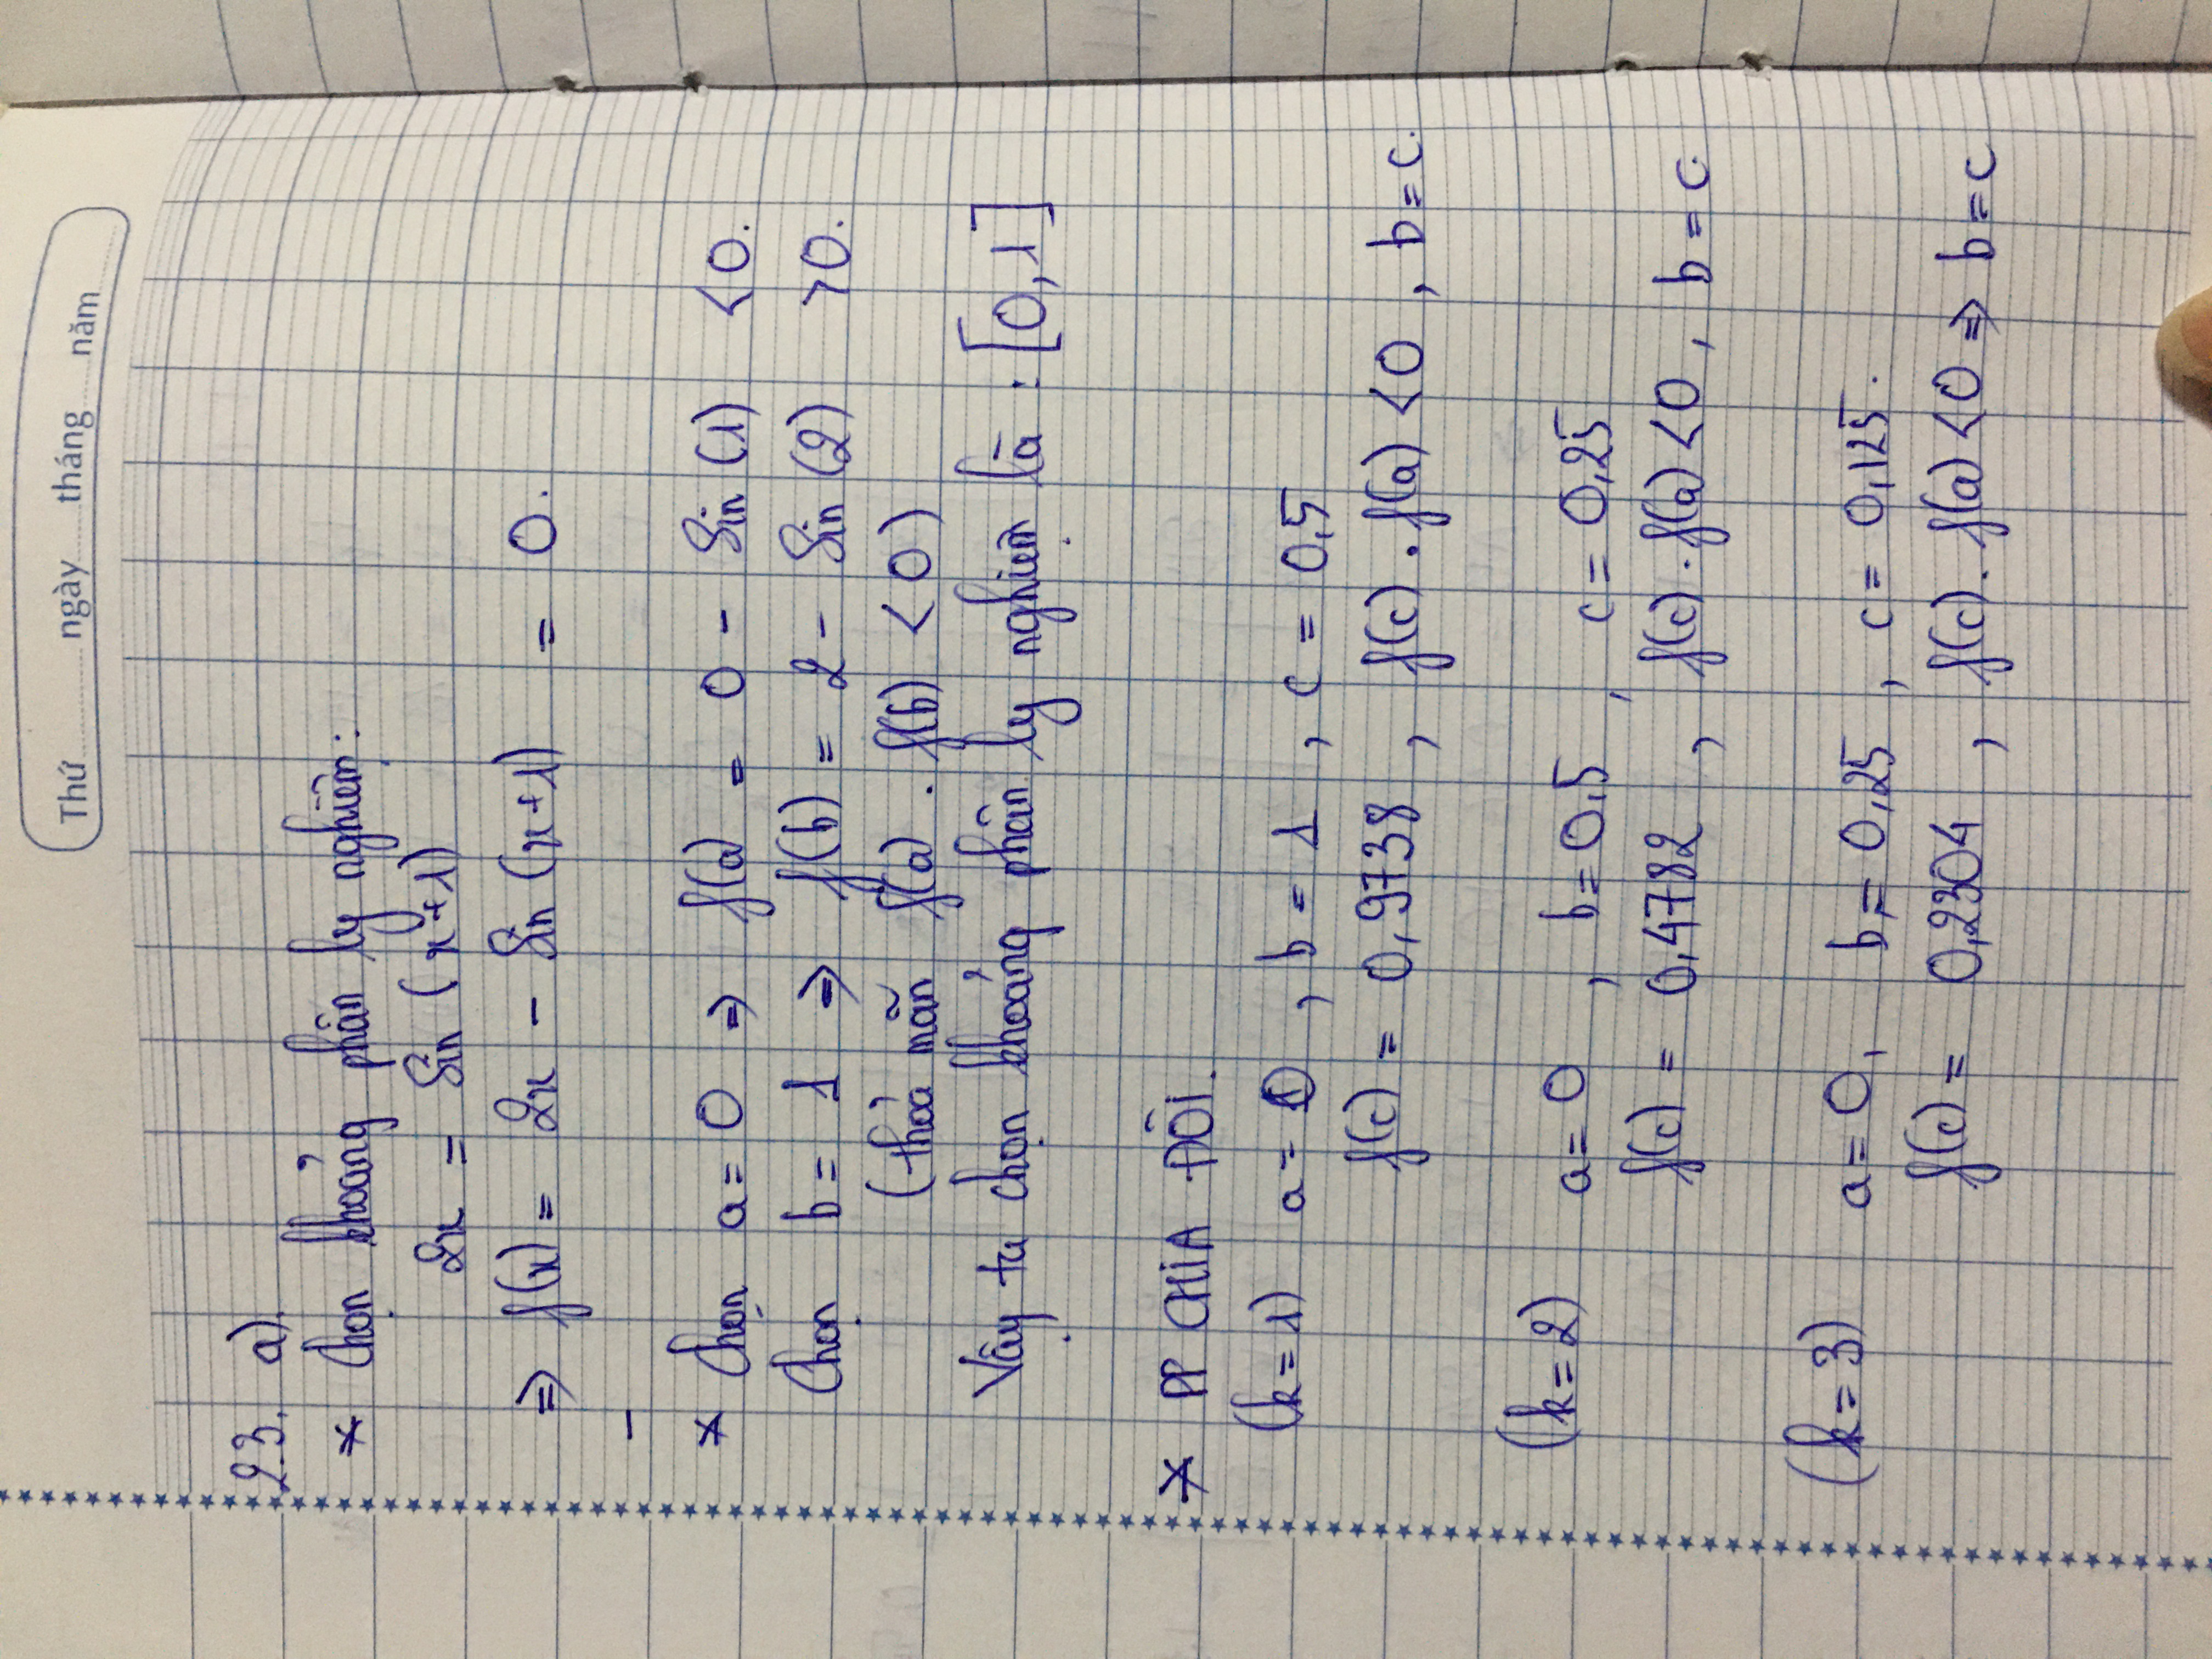 Thứ ngày tháng năm
2.3. a).
* Chọn khoảng phân ly nghiệm:
2x = sin (x+1)
=> f(x) = 2x - sin (x+1) = 0.
-
* Chọn a = 0 => f(a) = 0 - sin (1) < 0.
Chọn b = 1 => f(b) = 2 - sin (2) > 0.
(thoả mãn f(a) . f(b) < 0)
Vậy ta chọn khoảng phân ly nghiệm là : [0,1]
* PP CHIA ĐÔI.
(k=1) a = 0 , b = 1 , c = 0,5
f(c) = 0,9738 , f(c) . f(a) < 0 , b = c.
(k=2) a = 0 , b = 0,5 , c = 0,25
f(c) = 0,4782 , f(c) . f(a) < 0 , b = c.
(k=3) a = 0, b = 0,25 , c = 0,125.
f(c) = 0,2304 , f(c) . f(a) < 0 => b = c